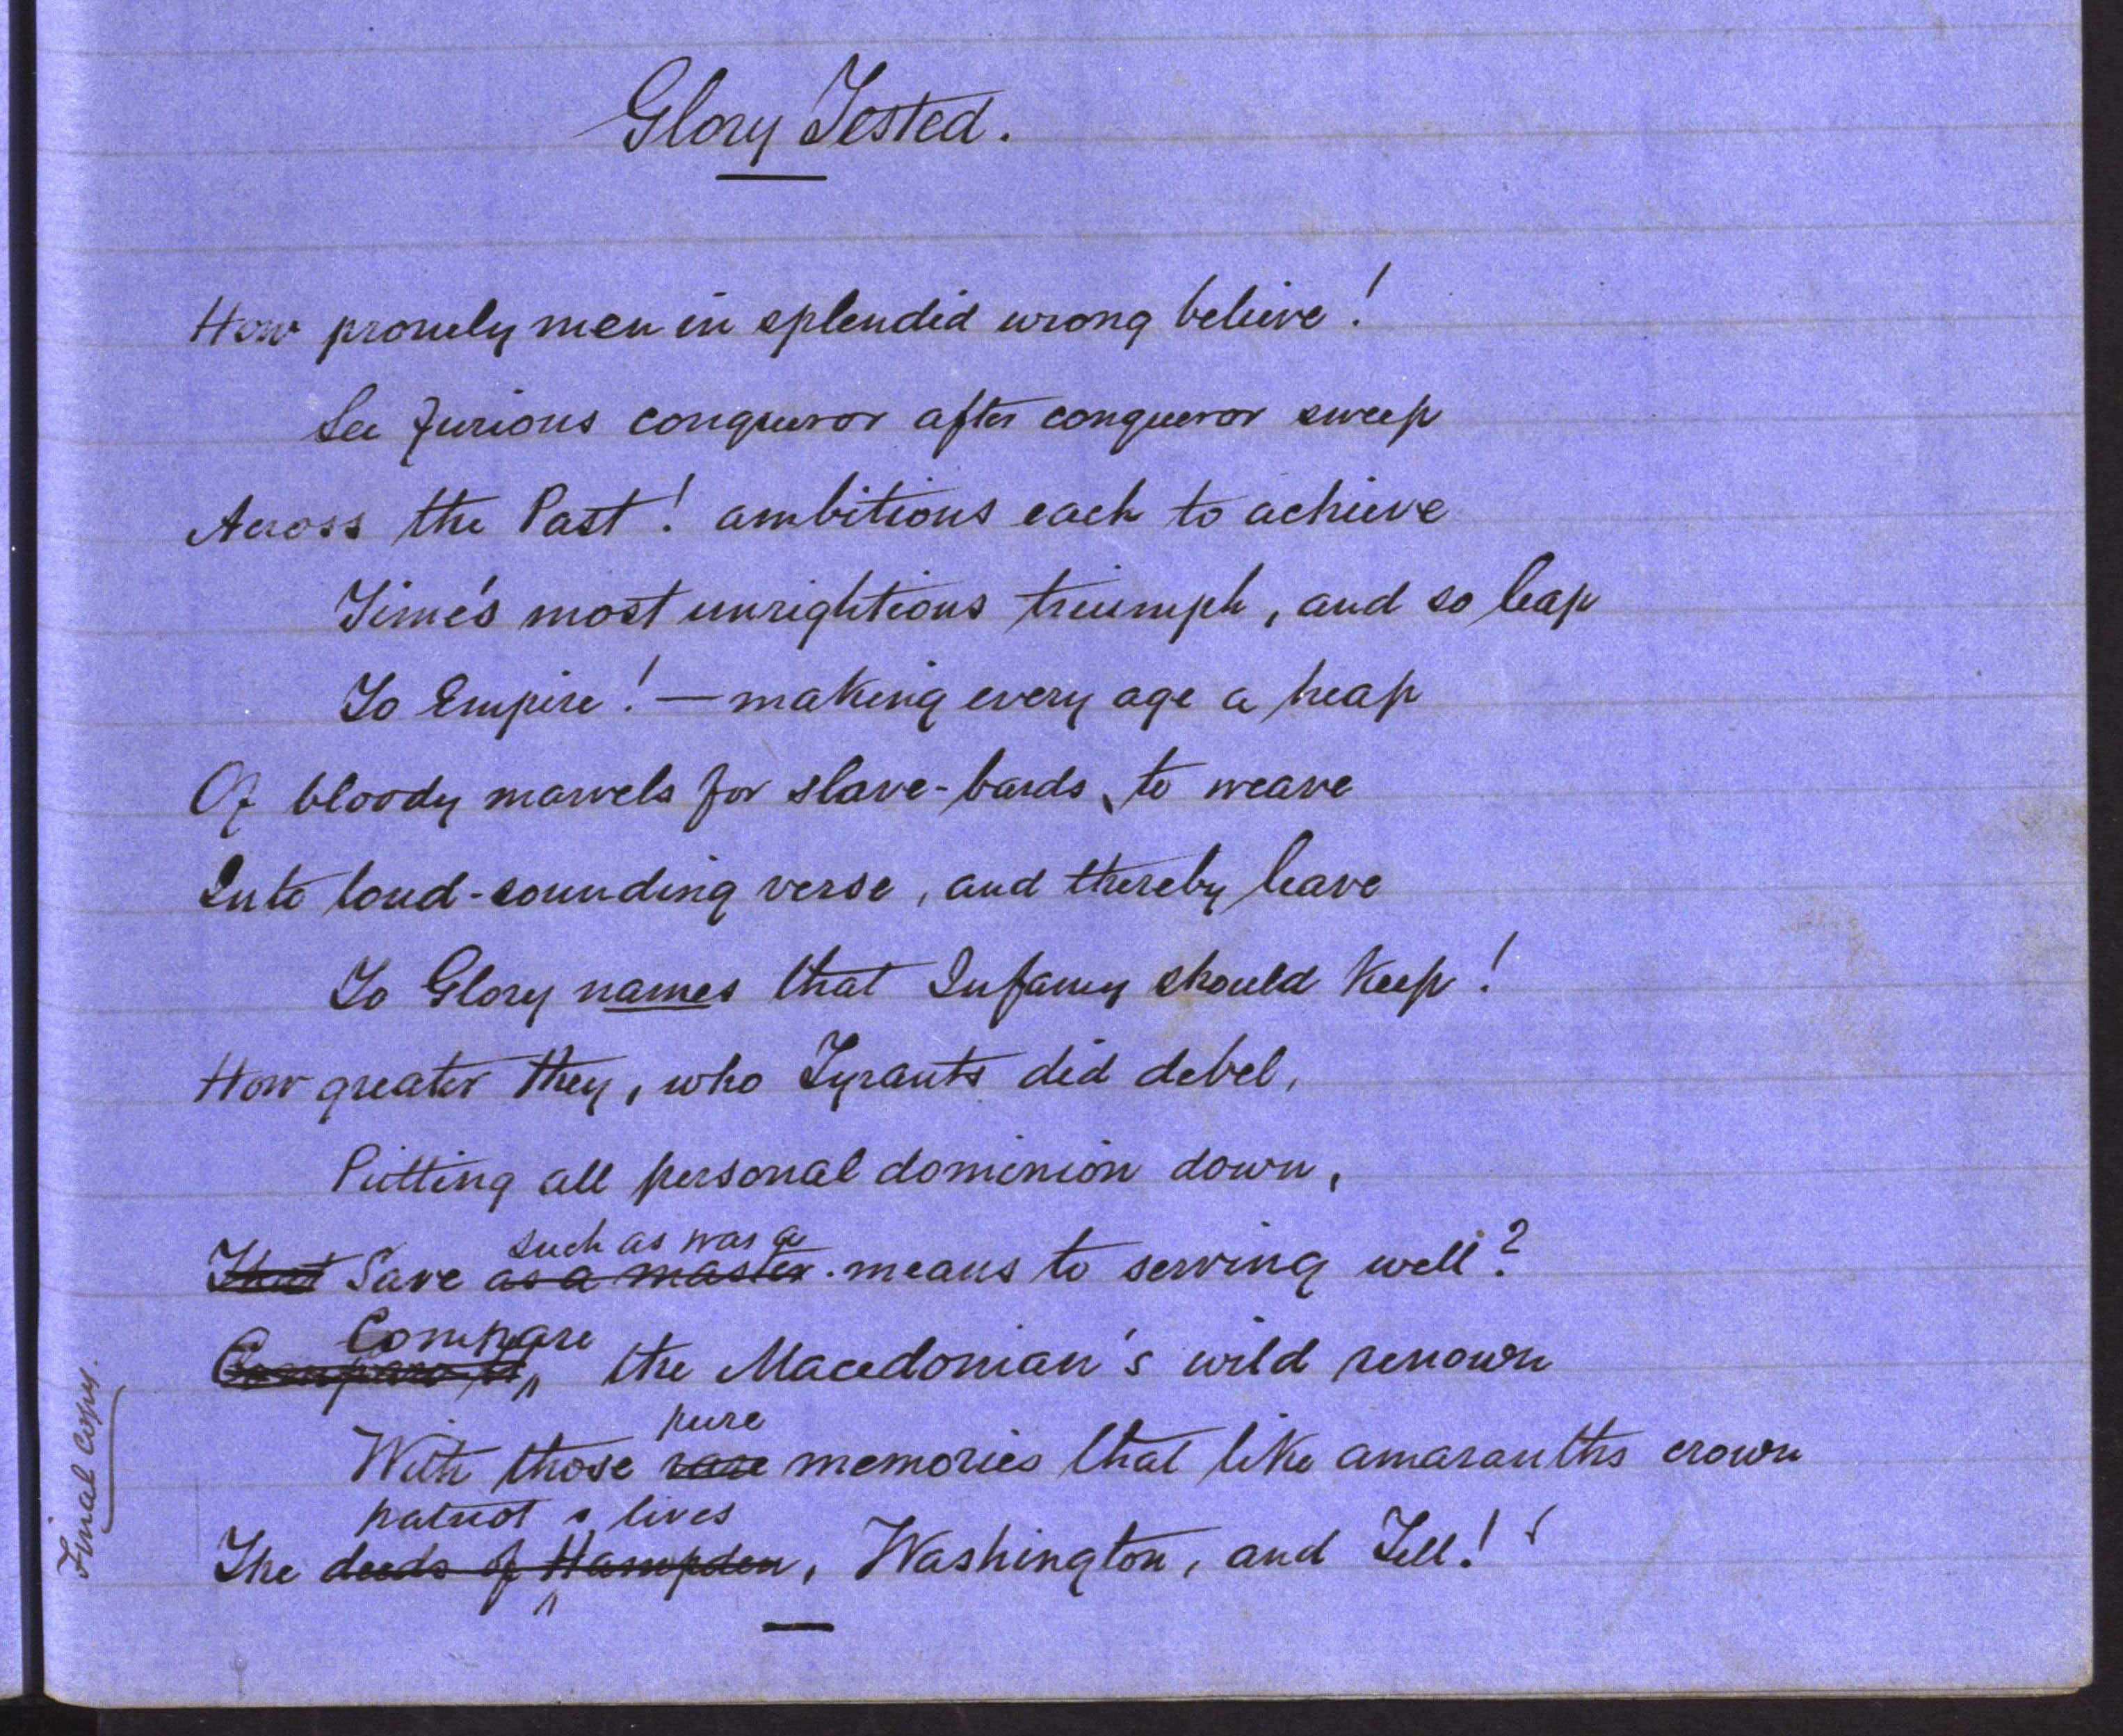 Glory Tested.
How proudly men in splendid wrong believe!
See furious conqueror after conqueror sweep
Across the Past! ambitious each to achieve
Time's most unrighteous triumph, and so leap
To Empire! — making every age a heap
Of bloody marvels for slave-bards, to weave
Into loud-sounding verse, and thereby leave
To Glory names that Infamy should keep!
How greater they, who Tyrants did debel,
Putting all personal dominion down,
such as was a
That Save as a master means to serving well?
Compare
the Macedonian's wild renown
pure
With those rare memories that like amaranths crown
patriot lives
The deeds of Hampden, Washington, and Tell!
Final copy.